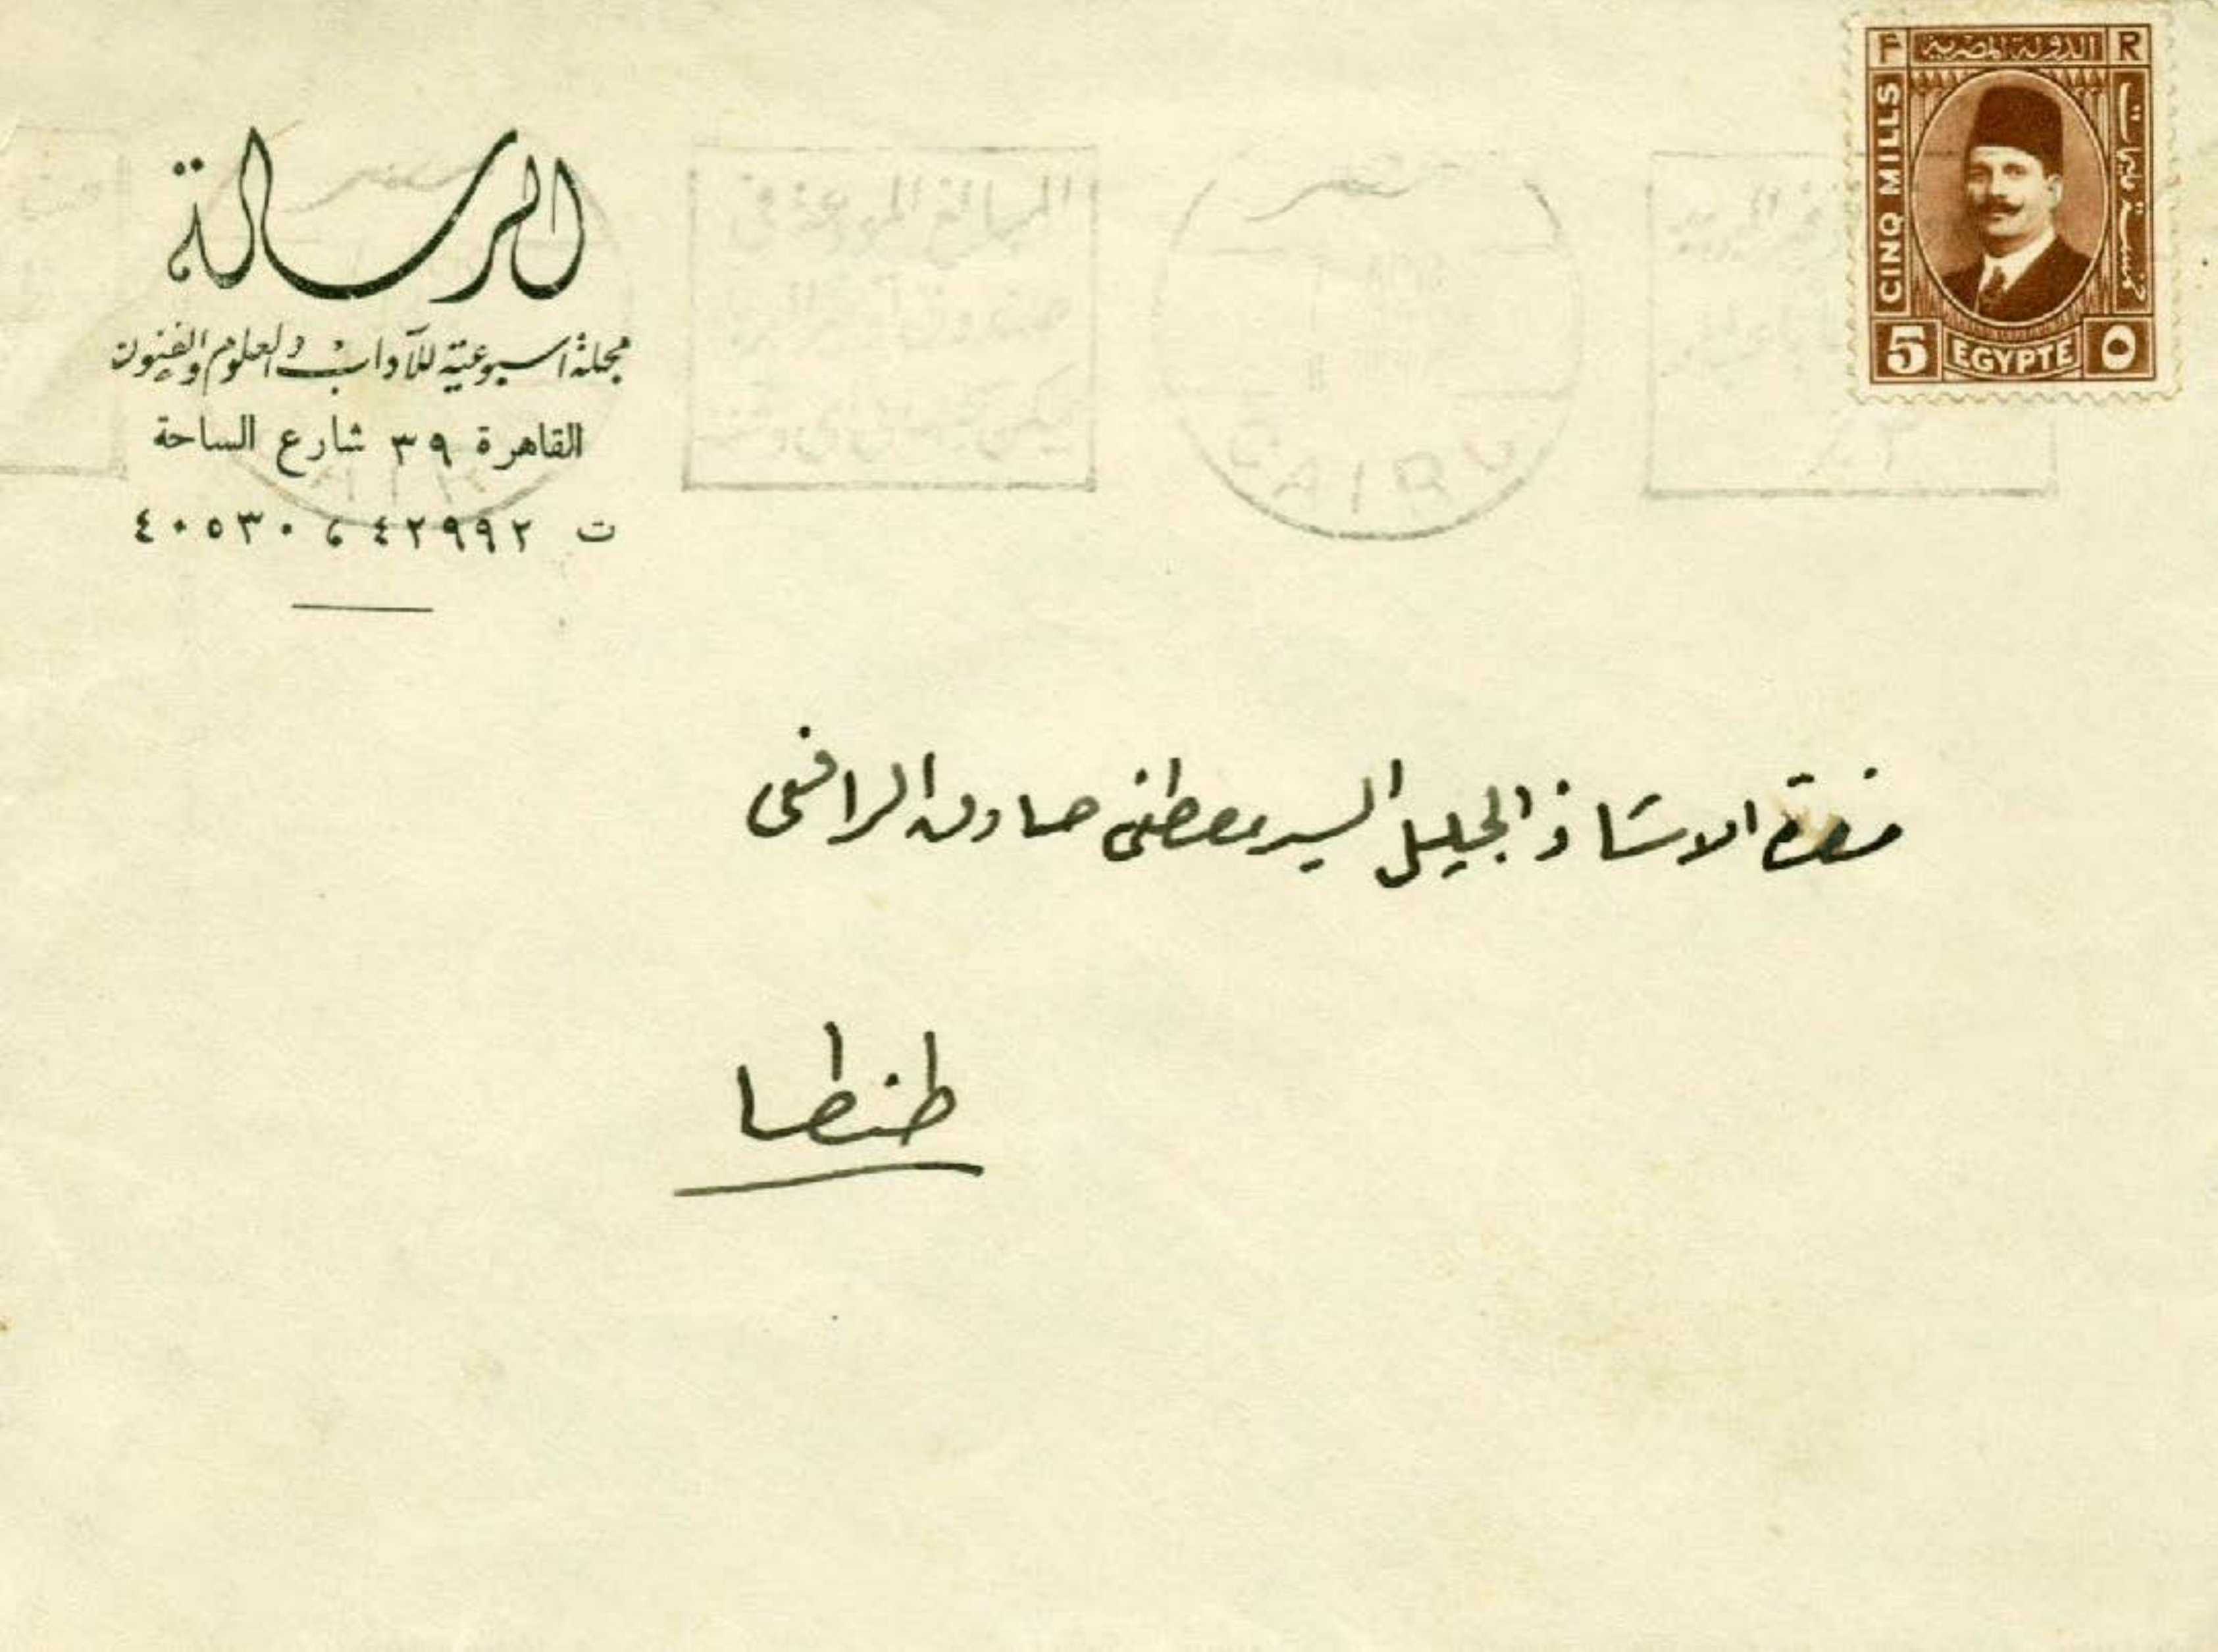 الرسالة
مجلة اسبوعية للآداب والعلوم والفنون
القاهرة ٣٩ شارع الساحة
ت ٤٢٩٩٢ ، ٤٠٥٣٠
F الدولة المصرية R
CINQ MILLS
خمسة مليمات
5 EGYPTE ٥
المبالغ المودعة في
مصر
CAIRO
حضرة الاستاذ الجليل السيد مصطفى صادق الرافعى
طنطا